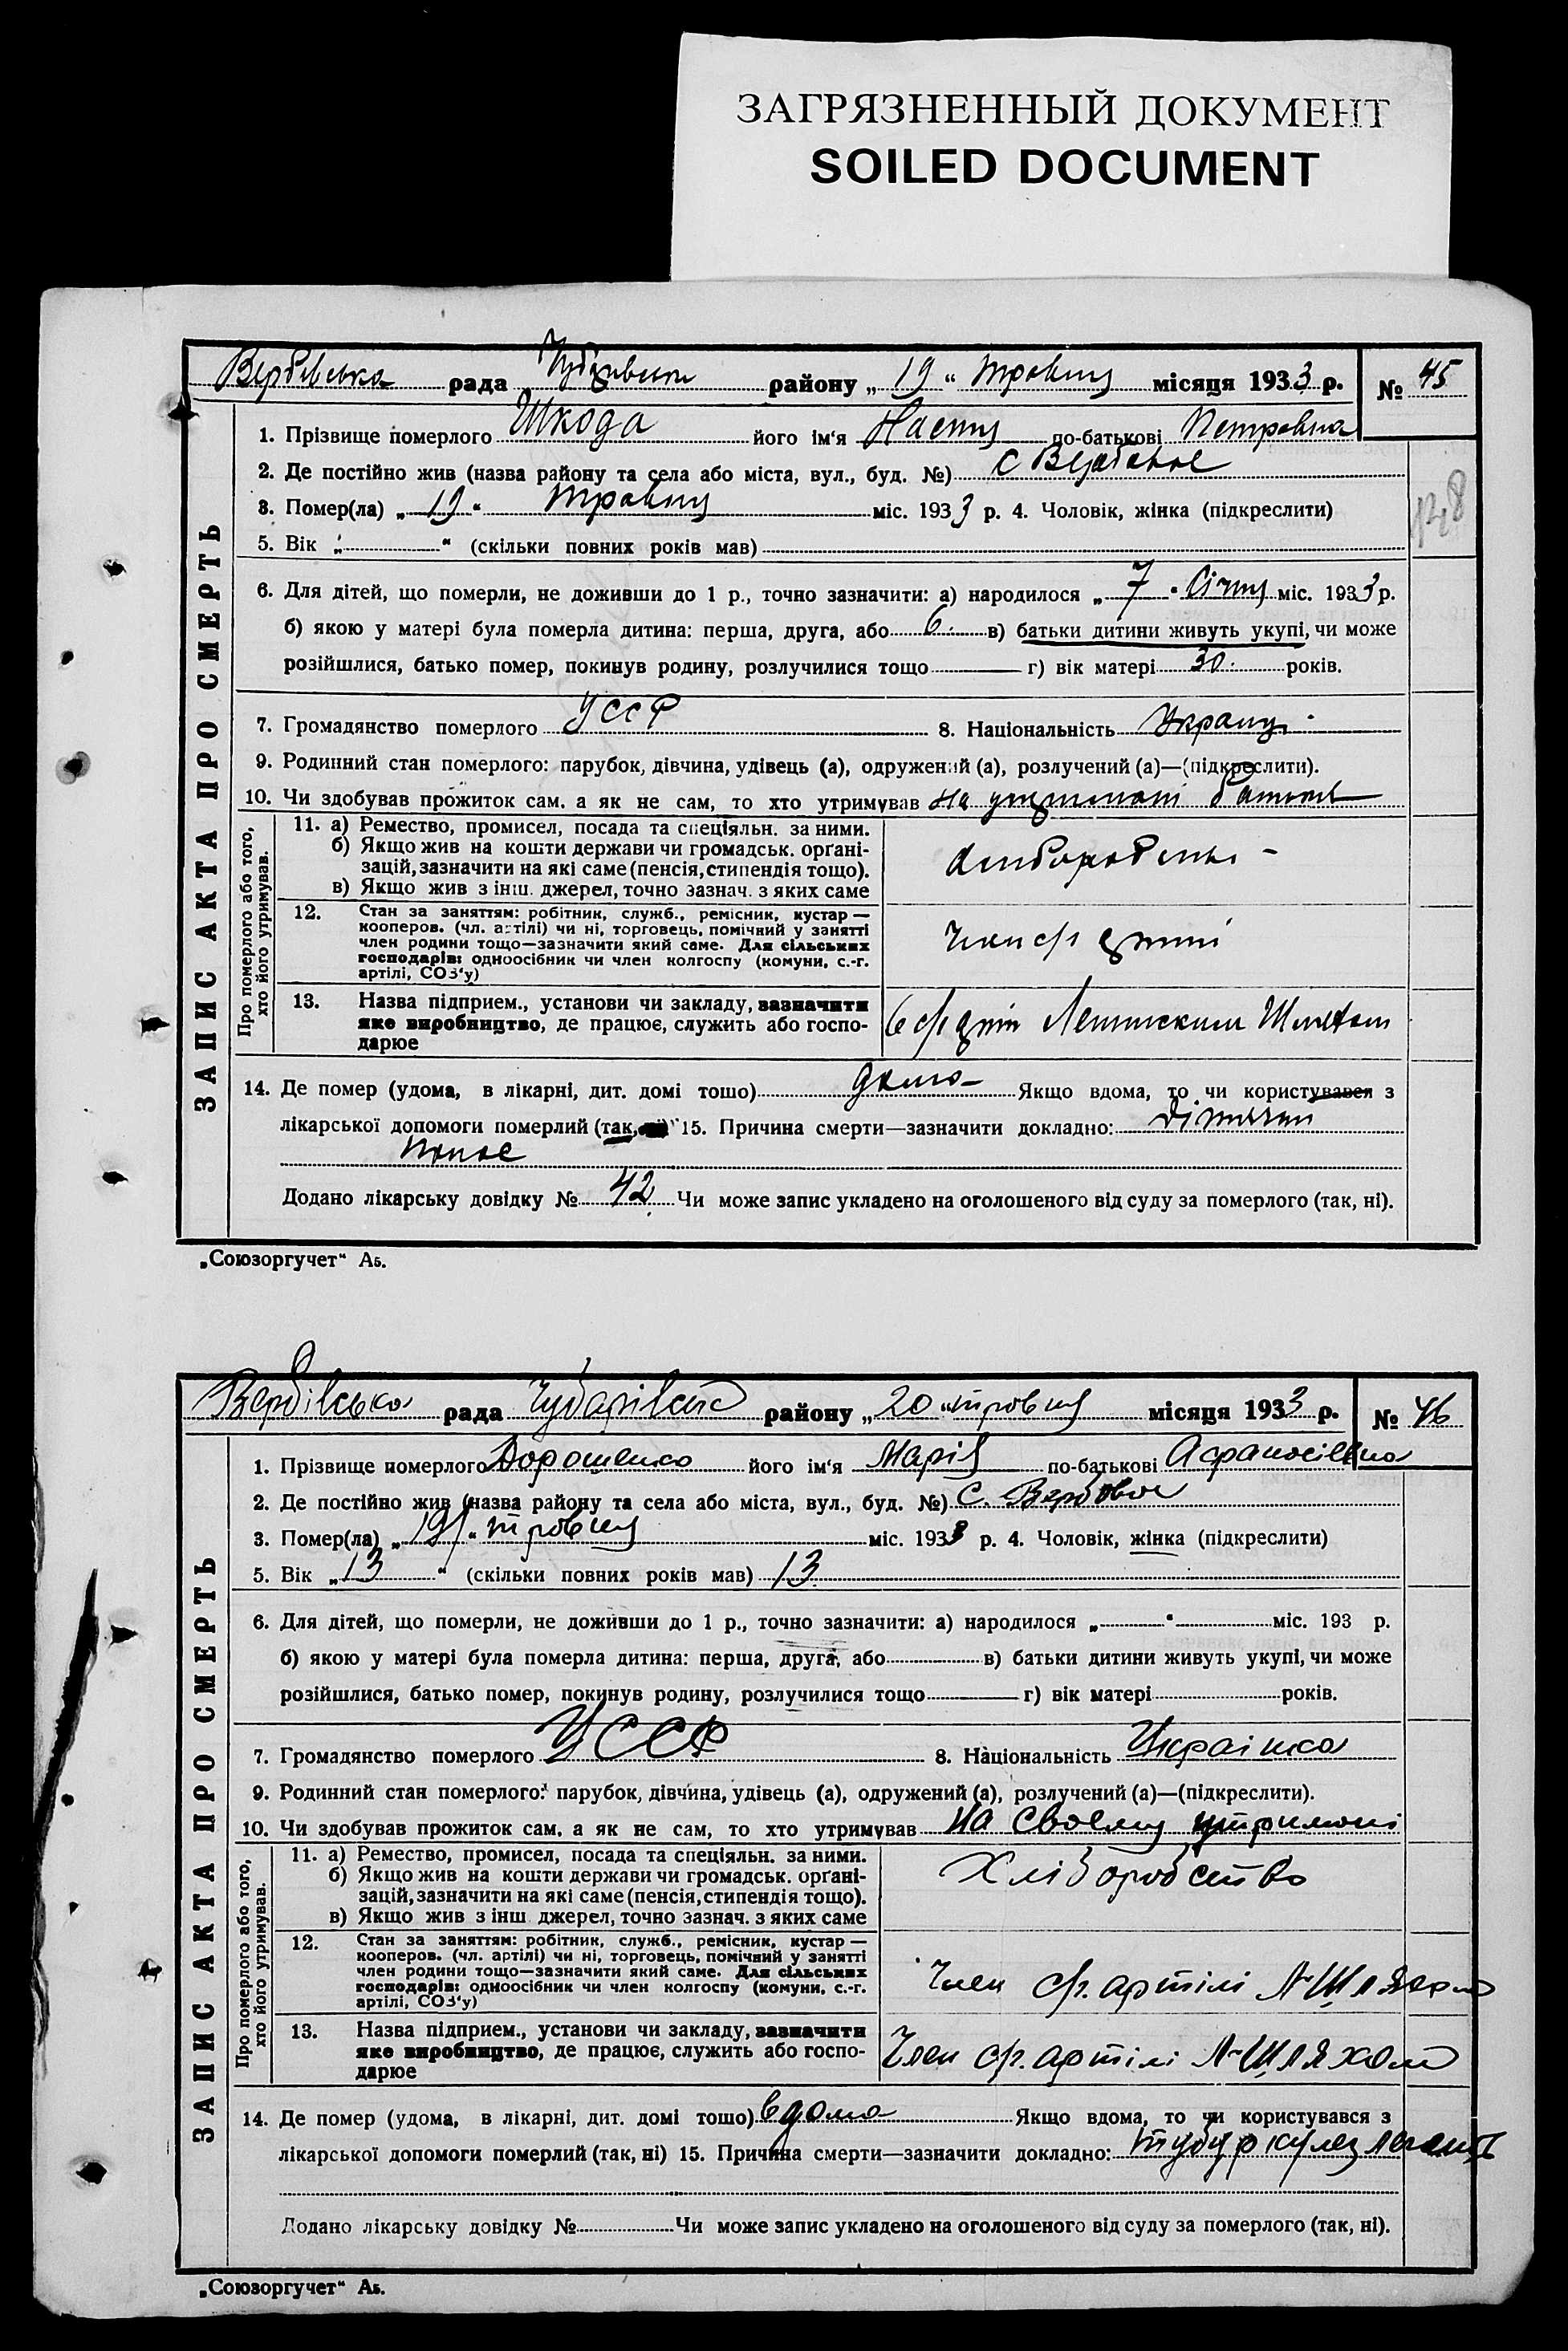 ЗАГРЯЗНЕННЫЙ ДОКУМЕНТ
SOILED DOCUMENT
Вербівська рада району „ 19 “ травня місяця 1933 р. № 45
1. Прізвище померлого Шкода його ім'я Настя по-батькові Петровна
2. Де постійно жив (назва району та села або міста, вул., буд. №) с Вербовое
3. Помер(ла) „ 19 “ травня міс. 1933 р. 4. Чоловік, жінка (підкреслити)
5. Вік „ “ (скільки повних років мав)
128
6. Для дітей, що померли, не доживши до 1 р., точно зазначити: а) народилося „ 7 “ Січня міс. 1933 р.
б) якою у матері була померла дитина: перша, друга, або 6. в) батьки дитини живуть укупі, чи може
розійшлися, батько помер, покинув родину, розлучилися тощо г) вік матері 30. років.
7. Громадянство померлого УССР 8. Національність
9. Родинний стан померлого: парубок, дівчина, удівець (а), одружений (а), розлучений (а)—(підкреслити).
10. Чи здобував прожиток сам, а як не сам, то хто утримував На утримані
Про померлого або того, хто його утримував.
11. а) Ремество, промисел, посада та спеціяльн. за ними.
б) Якщо жив на кошти держави чи громадськ. орґані-
зацій, зазначити на які саме (пенсія, стипендія тощо).
в) Якщо жив з інш. джерел, точно зазнач. з яких саме
12. Стан за заняттям: робітник, служб., ремісник, кустар —
кооперов. (чл. артілі) чи ні, торговець, помічний у занятті
член родини тощо—зазначити який саме. Для сільських
господарів: одноосібник чи член колгоспу (комуни, с.-г.
артілі, СОЗ'у)
13. Назва підприєм., установи чи закладу, зазначити
яке виробництво, де працює, служить або госпо-
дарює
14. Де помер (удома, в лікарні, дит. домі тошо) дома Якщо вдома, то чи користувався з
лікарської допомоги померлий (так, 15. Причина смерти—зазначити докладно:
понос
Додано лікарську довідку № 42 Чи може запис укладено на оголошеного від суду за померлого (так, ні).
ЗАПИС АКТА ПРО СМЕРТЬ
„Союзоргучет“ А5.
Вербівська рада Чубарівского району „ 20 “ травня місяця 1933 р. № 46
1. Прізвище померлого Дорошенко його ім'я Марія по-батькові
2. Де постійно жив (назва району та села або міста, вул., буд. №) С. Вербовое
3. Помер(ла) „ 19 “ травня міс. 1933 р. 4. Чоловік, жінка (підкреслити)
5. Вік „ 13 “ (скільки повних років мав) 13
6. Для дітей, що померли, не доживши до 1 р., точно зазначити: а) народилося „ “ міс. 193 р.
б) якою у матері була померла дитина: перша, друга, або в) батьки дитини живуть укупі, чи може
розійшлися, батько помер, покинув родину, розлучилися тощо г) вік матері років.
7. Громадянство померлого УССР 8. Національність Українка
9. Родинний стан померлого: парубок, дівчина, удівець (а), одружений (а), розлучений (а)—(підкреслити).
10. Чи здобував прожиток сам, а як не сам, то хто утримував на своему утримані
Про померлого або того, хто його утримував.
11. а) Ремество, промисел, посада та спеціяльн. за ними.
б) Якщо жив на кошти держави чи громадськ. орґані-
зацій, зазначити на які саме (пенсія, стипендія тощо).
в) Якщо жив з інш. джерел, точно зазнач. з яких саме
Хліборобство
12. Стан за заняттям: робітник, служб., ремісник, кустар —
кооперов. (чл. артілі) чи ні, торговець, помічний у занятті
член родини тощо—зазначити який саме. Для сільських
господарів: одноосібник чи член колгоспу (комуни, с.-г.
артілі, СОЗ'у)
Член с/г. артілі Л-Шляхом
13. Назва підприєм., установи чи закладу, зазначити
яке виробництво, де працює, служить або госпо-
дарює
Член с/г. артілі Л-Шляхом
14. Де помер (удома, в лікарні, дит. домі тошо) вдома Якщо вдома, то чи користувався з
лікарської допомоги померлий (так, ні) 15. Причина смерти—зазначити докладно: туберкулез
Додано лікарську довідку № Чи може запис укладено на оголошеного від суду за померлого (так, ні).
ЗАПИС АКТА ПРО СМЕРТЬ
„Союзоргучет“ А5.